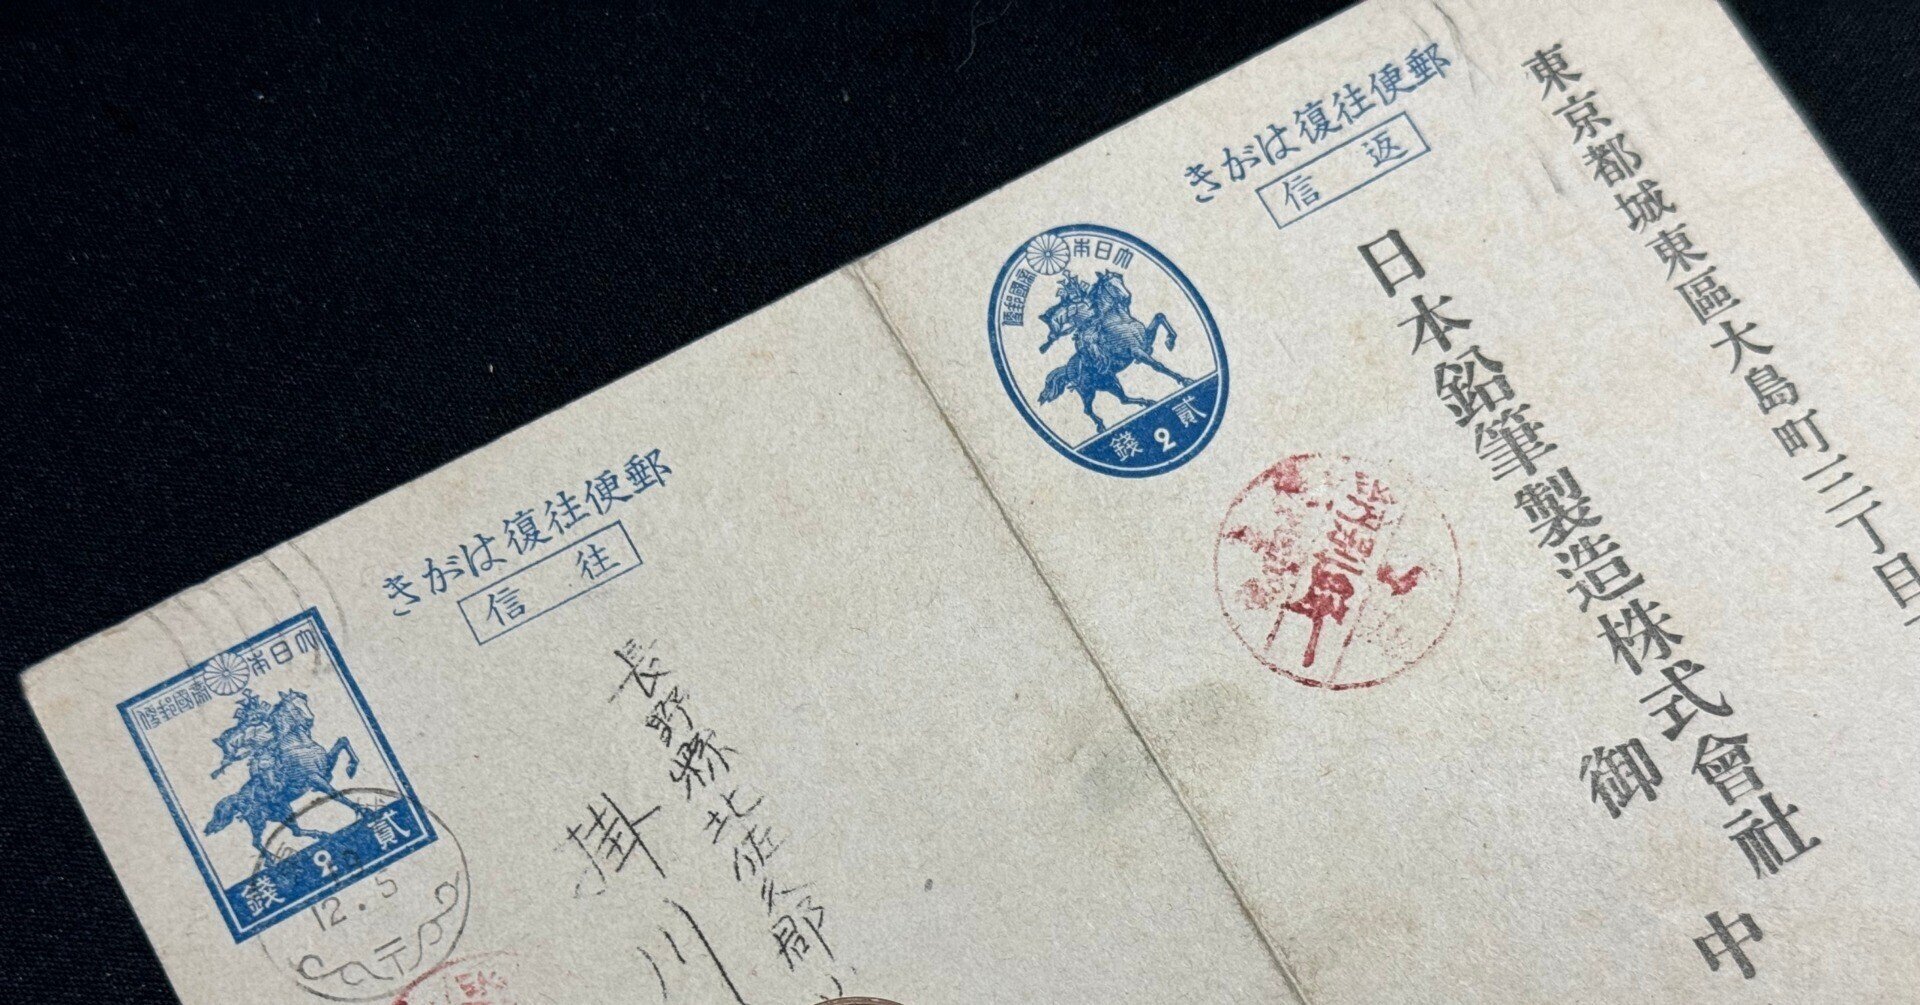 東京都城東區大島町三丁目
日本鉛筆製造株式會社
御中
きがは復往便郵
信 返
本日大
便郵國帝
錢 2 貳
きがは復往便郵
信 往
本日大
便郵國帝
錢 2 貳
12.5
〒
長野縣北佐久郡
掛川